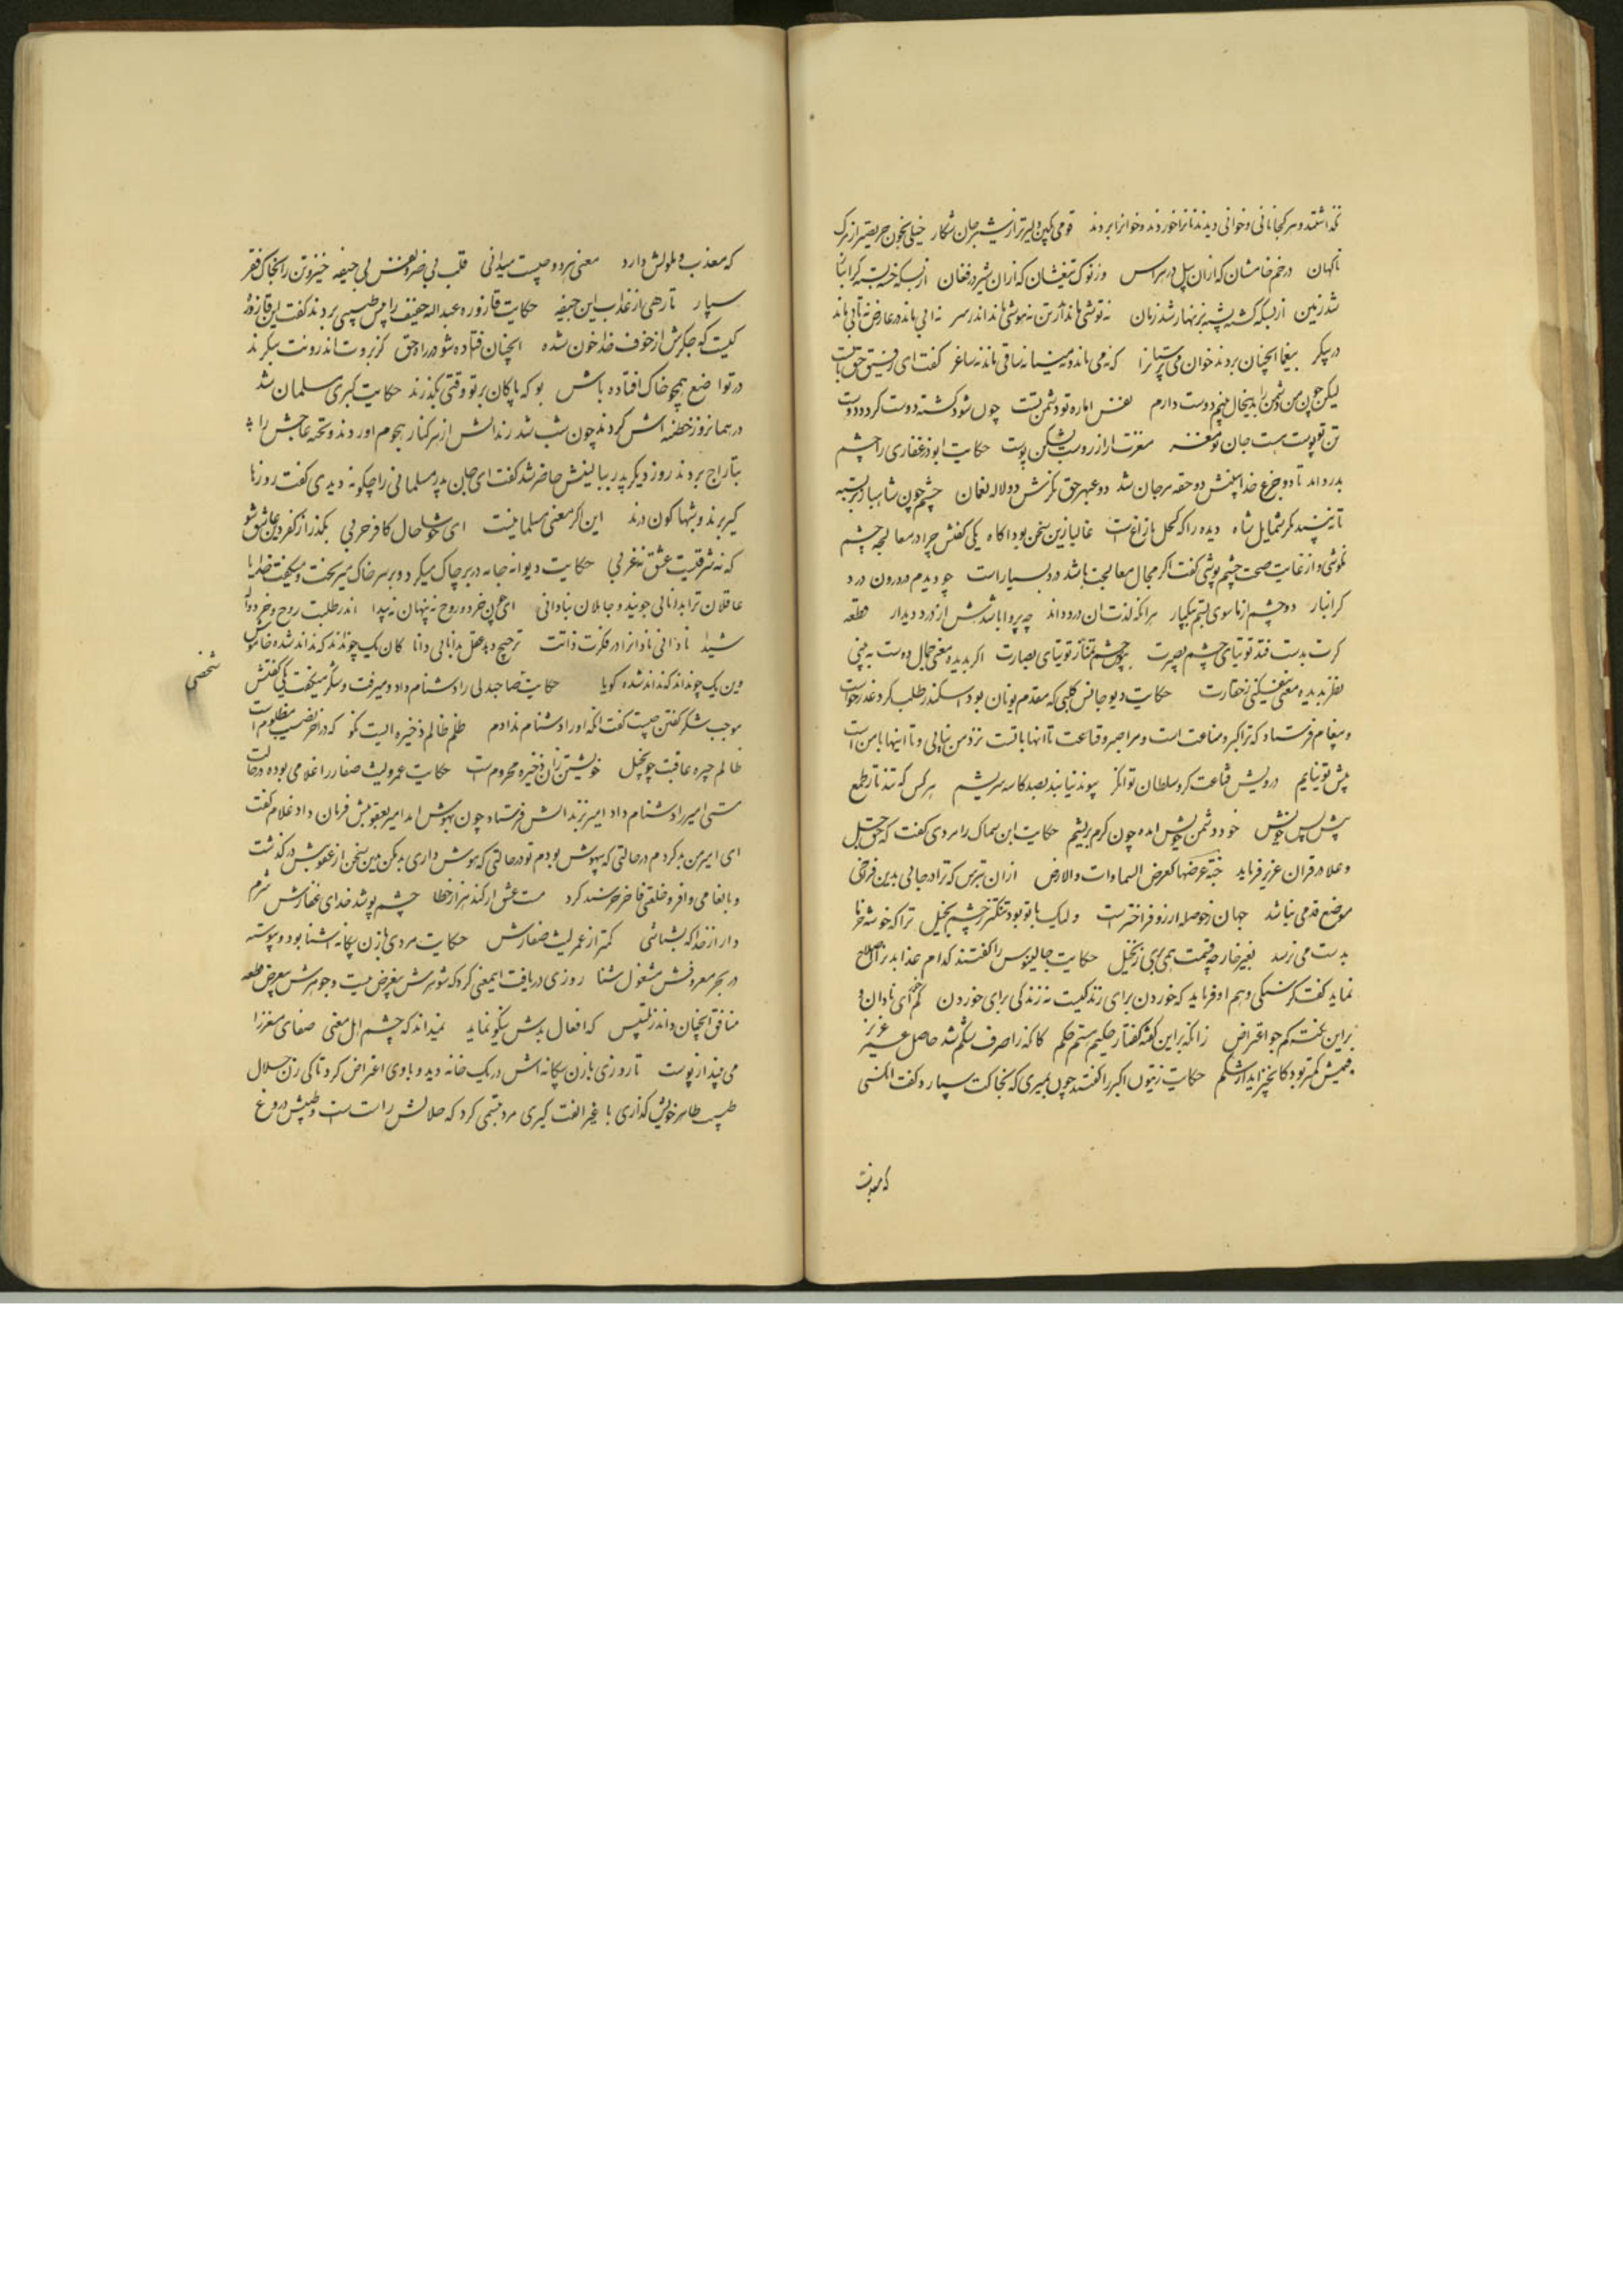 نگذاشتند و هر کجا نانی و خوانی دیدند نانرا خوردند و خوانرا بردند قومی بکین دلیرتر از شیر جان شکار خیلی بخون حریصتر از مرک
ناکهان در خم خامشان که ازان پیل در هراس وز نوک تیغشان که ازان شیر در فغان از بسکه خسته بسته کرانبا
شد زمین از بسکه کشته پشته بزنهار شد زمان نه توشی ماند از تن نه هوشی ماند اندر سر نه ابی ماند در عارض نه تابی ماند
در پیکر بیغما انچنان بردند خوان می پرستانرا که نه می ماند و نه مینا نه ساقی ماند نه ساغر کفت ای رفیق حق بتست
لیکن چون من دشمن را بدینحال بینم دوست دارم نفس اماره تو دشمن تست چون شود کشته دوست کردد دوست
تن تو پوست هست جان تو مغز مغزت ار ارزوست بشکن پوست حکایت ابوذر غفاری را چشم
بدرد امد تا دو جزع خدا بینش دو حقه مرجان شد دو عبهر حق نکرش دو لاله نعمان چشم چون شاهباز بربسته
تا نبیند مکر شمایل شاه دیده را که کحل مازاغ است غالبا زین سخن بود اکاه یکی کفتش چرا در معالجه چشم
نکوشی و از غایت صحت چشم پوشی کفت اکر مجال معالجت باشد درد بسیار است چو دیدم در درون درد
کرانبار دو چشم از ماسوی بستم بیکبار هر انکه لذت ان درد داند چه پروا باشدش از درد دیدار قطعه
کرت بدست فتد توتیای چشم بصیرت بپوش چشم تمنا ز توتیای بصارت اکر بدیده معنی جمال دوست به بینی
نظر بدیده معنی نیفکنی ز حقارت حکایت دیوجانس کلبی که مقدم یونان بود اسکندر طلب کرد عذر خواست
و پیغام فرستاد که ترا کبر و مناعت است و مرا صبر و قناعت تا انها با تست نزد من نیایی و تا اینها با من است
پیش تو نیایم درویش قناعت کر و سلطان توانکر پیوند نیابند بصد کاسه سریشم هر کس که تند تار طمع
پیش و پس خویش خود دشمن خویش امده چون کرم بریشم حکایت ابن سماک را مردی کفت که حق جل
و علا در قران عزیز فرماید جنة عرضها کعرض السماوات والارض ازان بترس که ترا در جایی بدین فراخی
موضع قدمی نباشد جهان ز حوصله ارزو فراختر است ولیک با تو بود تنکتر ز چشم بخیل ترا که خوشه خرما
بدست می نرسد بغیر خار چه قسمت همی بری ز نخیل حکایت جالینوس را کفتند کدام غذا بدن را اصلاح
نماید کفت کرسنکی و هم او فرماید که خوردن برای زندکیست نه زندکی برای خوردن کم خور ای نادان و
براین نکته کم جو اعتراض زانکه براین کفته کفتار حکیمستم حکم کانکه را صرف شکم شد حاصل عمر عزیز
قیمتش کمتر بود کانچه زاید از شکم حکایت زیتون اکبر را کفتند چون بمیری که بخاکت سپارد کفت انکسی
که معذب
که معذب و ملولش دارد معنی هر دو چیست میدانی قلب بی ضر و نفس بی جیفه خیز و تن را بخاک فقر
سپار تا رهی از عذاب این جیفه حکایت قازوره عبداله حفیف را پیش طبیبی بردند کفت این قازوره
کیست که جکرش از خوف خدا خون شده انچنان فتاده شو در راه حق کز برونت اندرونت بنکرند
در تواضع همچو خاک افتاده باش بو که پاکان بر تو وقتی بکذرند حکایت کبری مسلمان شد
در همانروز ختنه اش کردند چون شب شد رندانش از هر کنار هجوم اوردند و تخته عاجش را
بتاراج بردند روز دیکر پدر ببالینش حاضر شد کفت ای جان پدر مسلمانی را چکونه دیدی کفت روزها
کیر برند و شبها کون درند این اکر معنی مسلمانیست ای خوشا حال کافر حربی بکذر از کفر و دین عاشق شو
که نه شرقیست عشق نه غربی حکایت دیوانه جامه در بر چاک میکرد و بر سر خاک میریخت و میکفت خدایا
عاقلان ترا بدانایی جویند و جاهلان بنادانی ای چون خرد و روح نه پنهان نه پیدا اندر طلبت روح و خرد واله
شیدا نادانی نادانرا در فکرت ذاتت ترجیح دهد عقل بدانایی دانا کان یک چو نداند که نداند شده خاموش
وین یک چو نداند که نداند شده کویا حکایت صاحبدلی را دشنام داد و میرفت و شکر میکفت یکی کفتش
شخصی
موجب شکر کفتن چیست کفت انکه او را دشنام ندادم ظلم ظالم ذخیره ایست نکو که در اخر نصیب مظلوم است
ظالم چیره عاقبت چو بخیل خویشتن زان ذخیره محروم است حکایت عمرو لیث صفار را غلامی بوده در حالت
مستی امیر را دشنام داد امیر بزندانش فرستاد چون بهوش امد امیر بعقوبتش فرمان داد غلام کفت
ای امیر من بد کردم در حالتی که بیهوش بودم تو در حالتی که هوش داری بد مکن بدین سخن از عقوبتش درکذشت
و بانعامی وافر و خلعتی فاخر خرسند کرد مست عشق ار کند هزار خطا چشم پوشد خدای غفارش شرم
دار از خدا که بشناسی کمتر از عمرو لیث صفارش حکایت مردی با زن بیکانه اشنا بود و پیوسته
در بحر معروفش مشغول شنا روزی دریافت اینمعنی کرد که شوهرش بیغرض نیست و جوهرش بیعرض قطعه
منافق انچنان داند ز تلبیس که افعال بدش نیکو نماید نمیداند که چشم اهل معنی صفای مغز را
می بیند از پوست تا روزی با زن بیکانه اش در یک خانه دید و با وی اعتراض کرد تا کی زن حلال
طیب طاهر خویش کذاری با غیر الفت کیری مرد تبسمی کرد که حلالش راست است و طیبش دروغ